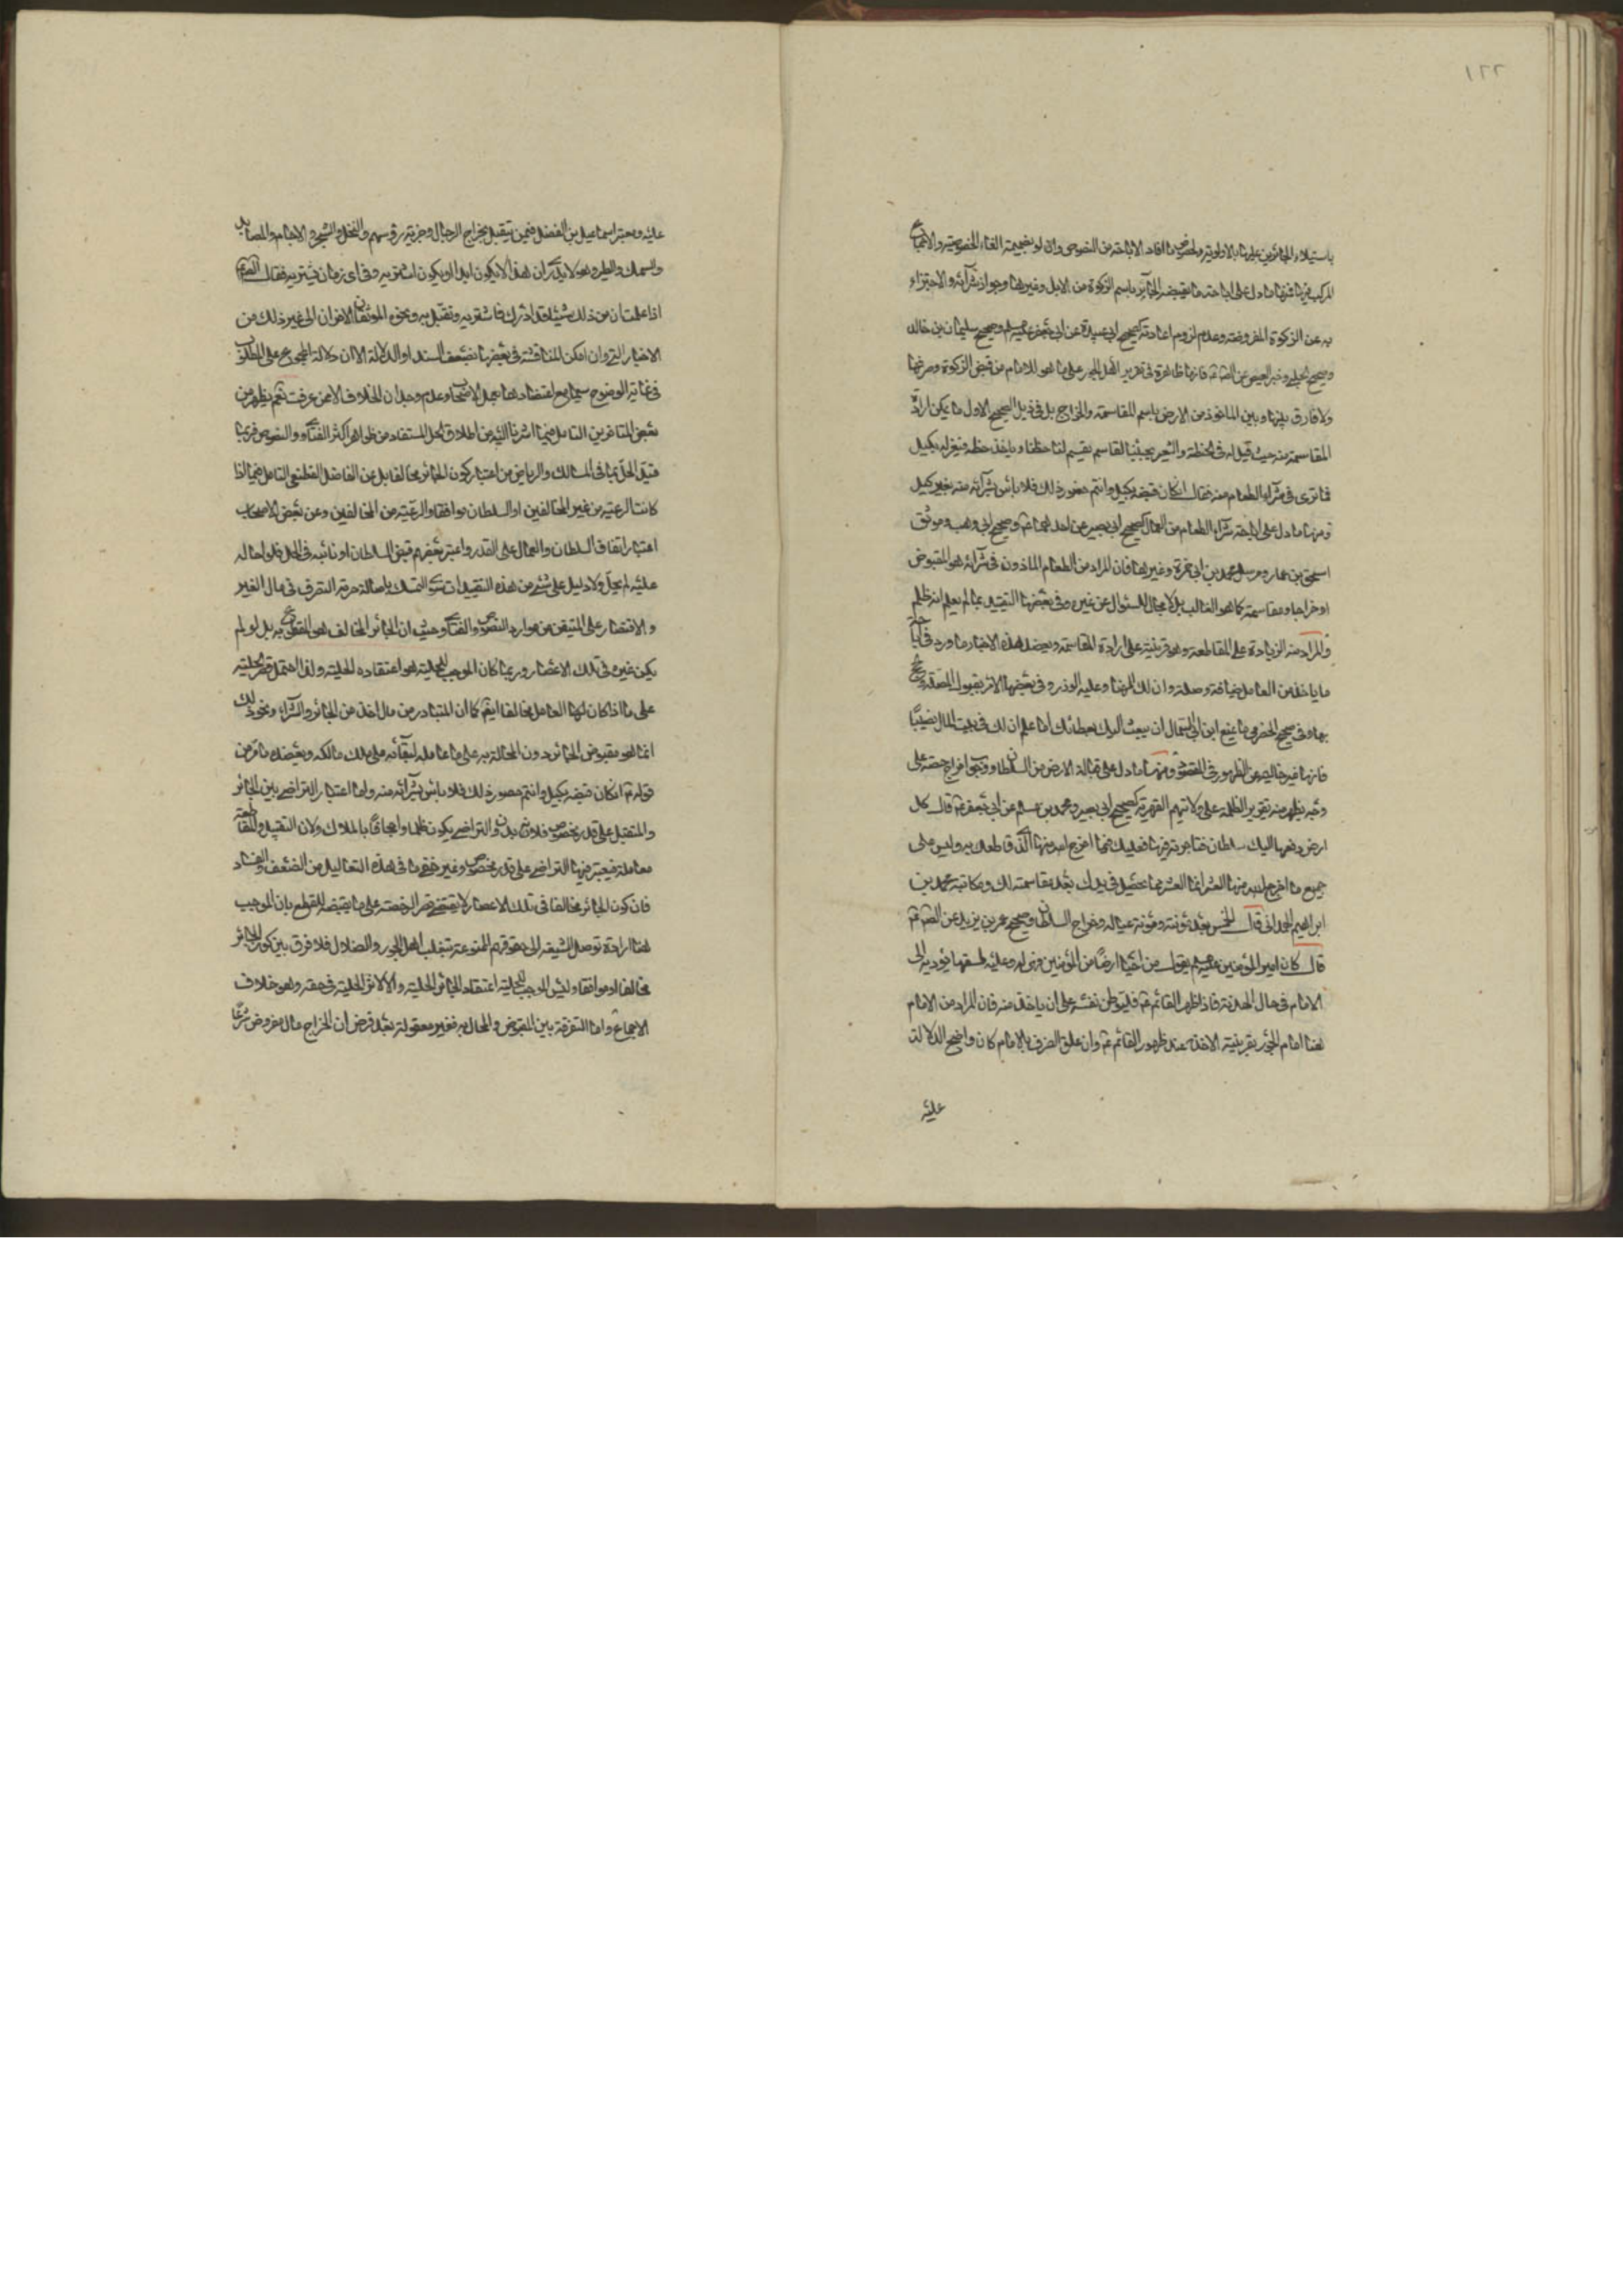 ١٢٢
باستيلاء الجائرين عليها بالاولوية ولخصوص ما افاد الاباحة من النصوص وان لو بضميمة الغاء الخصوصية والاجماع
المركب فيها فمنها ما دل على اباحة ما يقبضه الجائر باسم الزكوة من الابل وغيرها وجواز شرائه والاجتزاء
به عن الزكوة المفروضة وعدم لزوم اعادته كصحيح ابي عبيدة عن ابي جعفر عليه السلم وصحيح سليمان بن خالد
وصحيح الحلبي وخبر العيص عن فانها ظاهرة في تقرير اهل الجور على ما هو للامام من قبض الزكوة وصرفها
ولا فارق بينها وبين الماخوذ من الارض باسم المقاسمة والخراج بل في ذيل الصحيح الاول ما يمكن ارادة
المقاسمة منه حيث قيل له في الحنطة والشعير يجيئنا القاسم يقسم لنا حظنا وياخذ حظه فيعزله بكيل
فما ترى في شراء الطعام منه فقال ان كان قبضه بكيل وانتم حضور ذلك فلا باس بشرائه منه بغير كيل
ومنها ما دل على اباحة شراء الطعام من العمال كصحيح ابي بصير عن احدهما وصحيح ابي وهب وموثق
اسحق بن عمار ومرسل محمد بن ابي حمزة وغيرها فان المراد من الطعام الماذون في شرائه هو المقبوض
او خراجا ومقاسمة كما هو الغالب بل لا مجال للسئوال عن غيره وفي بعضها التقييد بما لم يعلم انه ظلم
والمراد منه الزيادة على المقاطعة وهو قرينة على ارادة المقاسمة ويعضد هذه الاخبار ما ورد في
ما ياخذ من العامل ضيافة وصلة وان لك المهنا وعليه الوزر وفي بعضها الامر بقبول الصدقة
بها وفي صحيح الحضرمي ما يمنع ابن ابي السمال ان يبعث اليك بعطائك اما علم ان لك في بيت المال نصيبا
فانها غير خالية عن الظهور في المقصود ومنها ما دل على قبالة الارض من السلطان ووجوب اخراج حصته على
وجه يظهر منه تقرير الظلمة على ولايتهم القهرية كصحيح ابي بصير ومحمد بن مسلم عن ابي جعفر ع قال كل
ارض دفعها اليك سلطان فتاجرته فيها فعليك فيما اخرج الله منها الذي قاطعك به وليس على
جميع ما اخرج الله منها العشر انما العشر فيما يحصل في يدك بعد مقاسمته لك ومكاتبة محمد بن
ابراهيم الهمداني قال الخمس بعد مؤنته ومؤنة عياله وخراج السلطان وصحيح عمر بن يزيد عن
قال كان امير المؤمنين عليه السلم يقول من احيا ارضا من المؤمنين فهي له وعليه طسقها يؤديه الى
الامام في حال الهدنة فاذا ظهر القائم ع فليوطن نفسه على ان ياخذ منه فان المراد من الامام
هنا امام الجور بقرينة الاخذ عند ظهور القائم ع وان علق الصرف بالامام كان واضح الدلالة
عليه
عليه ومعتبر اسماعيل بن الفضل فيمن يتقبل بخراج الرجال وجزية رؤسهم والنخل والشجر والاجام والمصايد
والسمك والطير وهو لا يدري ان هذا لا يكون ابدا او يكون اشتريه وفي اي زمان يشتريه فقال
اذا علمت ان من ذلك شيئا قد ادرك فاشتريه وتقبل به ونحوه الموثقان الاخران الى غير ذلك من
الاخبار التي وان امكن المناقشة في بعضها بضعف السند او الدلالة الا ان دلالة المجموع على المطلوب
في غاية الوضوح سيما مع اعتضادها بعمل الاصحاب وعدم وجدان الخلاف الا ممن عرفت نعم يظهر من
بعض المتاخرين التامل فيما اشرنا اليه من اطلاق الحل المستفاد من ظواهر اكثر الفتاوى والنصوص فربما
قيل الحل بما في المسالك والرياض من اعتبار كون الجائر مخالفا بل عن الفاضل القطيفي التامل فيما اذا
كانت الرعية من غير المخالفين او السلطان موافقا والرعية من المخالفين وعن بعض الاصحاب
اعتبار اتفاق السلطان والعمال على القدر واعتبر بعضهم قبض السلطان او نائبه في الحل فلو احاله
عليه لم يحل ولا دليل على شئ من هذه التقييدات سوى التمسك باصالة حرمة التصرف في مال الغير
والاقتصار على المتيقن من موارد النصوص والفتاوى وحيث ان الجائر المخالف هو بل لو لم
يكن غيره في تلك الاعصار وربما كان الموجب للحلية هو اعتقاده الحلية ولذا احتمل قصر الحلية
على ما اذا كان لهذا العامل مخالفا ايضا كما ان المتبادر من مال اخذ من الجائر والشراء ونحو ذلك
انما هو مقبوض الجائر دون الحالة به على ما عامله لبقائه على ملك مالكه ويعضده ما مر من
قوله ع ان كان قبضه بكيل وانتم حضور ذلك فلا باس بشرائه منه واما اعتبار التراضي بين الجائر
والمتقبل على قدر مخصوص فلان بدون التراضي يكون ظلما واجحافا بالملاك ولان التقبيل والمقاطعة
معاملة فيعتبر فيها التراضي على قدر مخصوص وغير خفي ما في هذه التعاليل من الضعف والفساد
فان كون الجائر مخالفا في تلك الاعصار لا يقتضي قصر الرخصة على ما يقبضه للقطع بان الموجب
لهذا ارادة توصل الشيعة الى حقوقهم الممنوعة بتغلب اهل الجور والضلال فلا فرق بين كون الجائر
مخالفا او موافقا وليس الموجب للحلية اعتقاد الجائر الحلية والا لاثر الحلية في حقه وهو خلاف
الاجماع واما التفرقة بين المقبوض والمحال به فغير معقولة بعد فرض ان الخراج مال مفروض شرعا